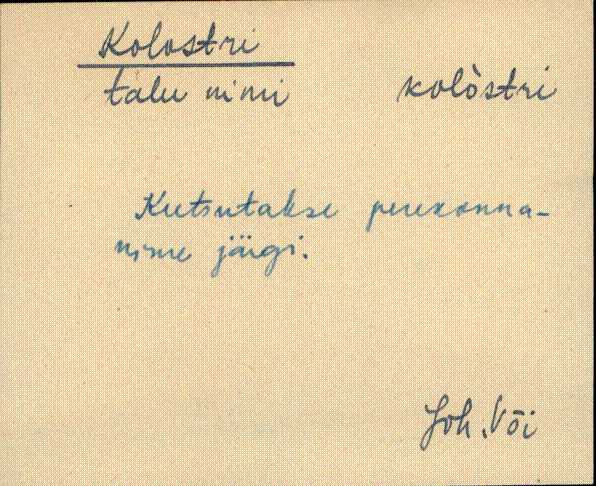 Kolostri
talu nimi kolòstri
Kutsutakse perekonna-
nime järgi.
Joh. Või